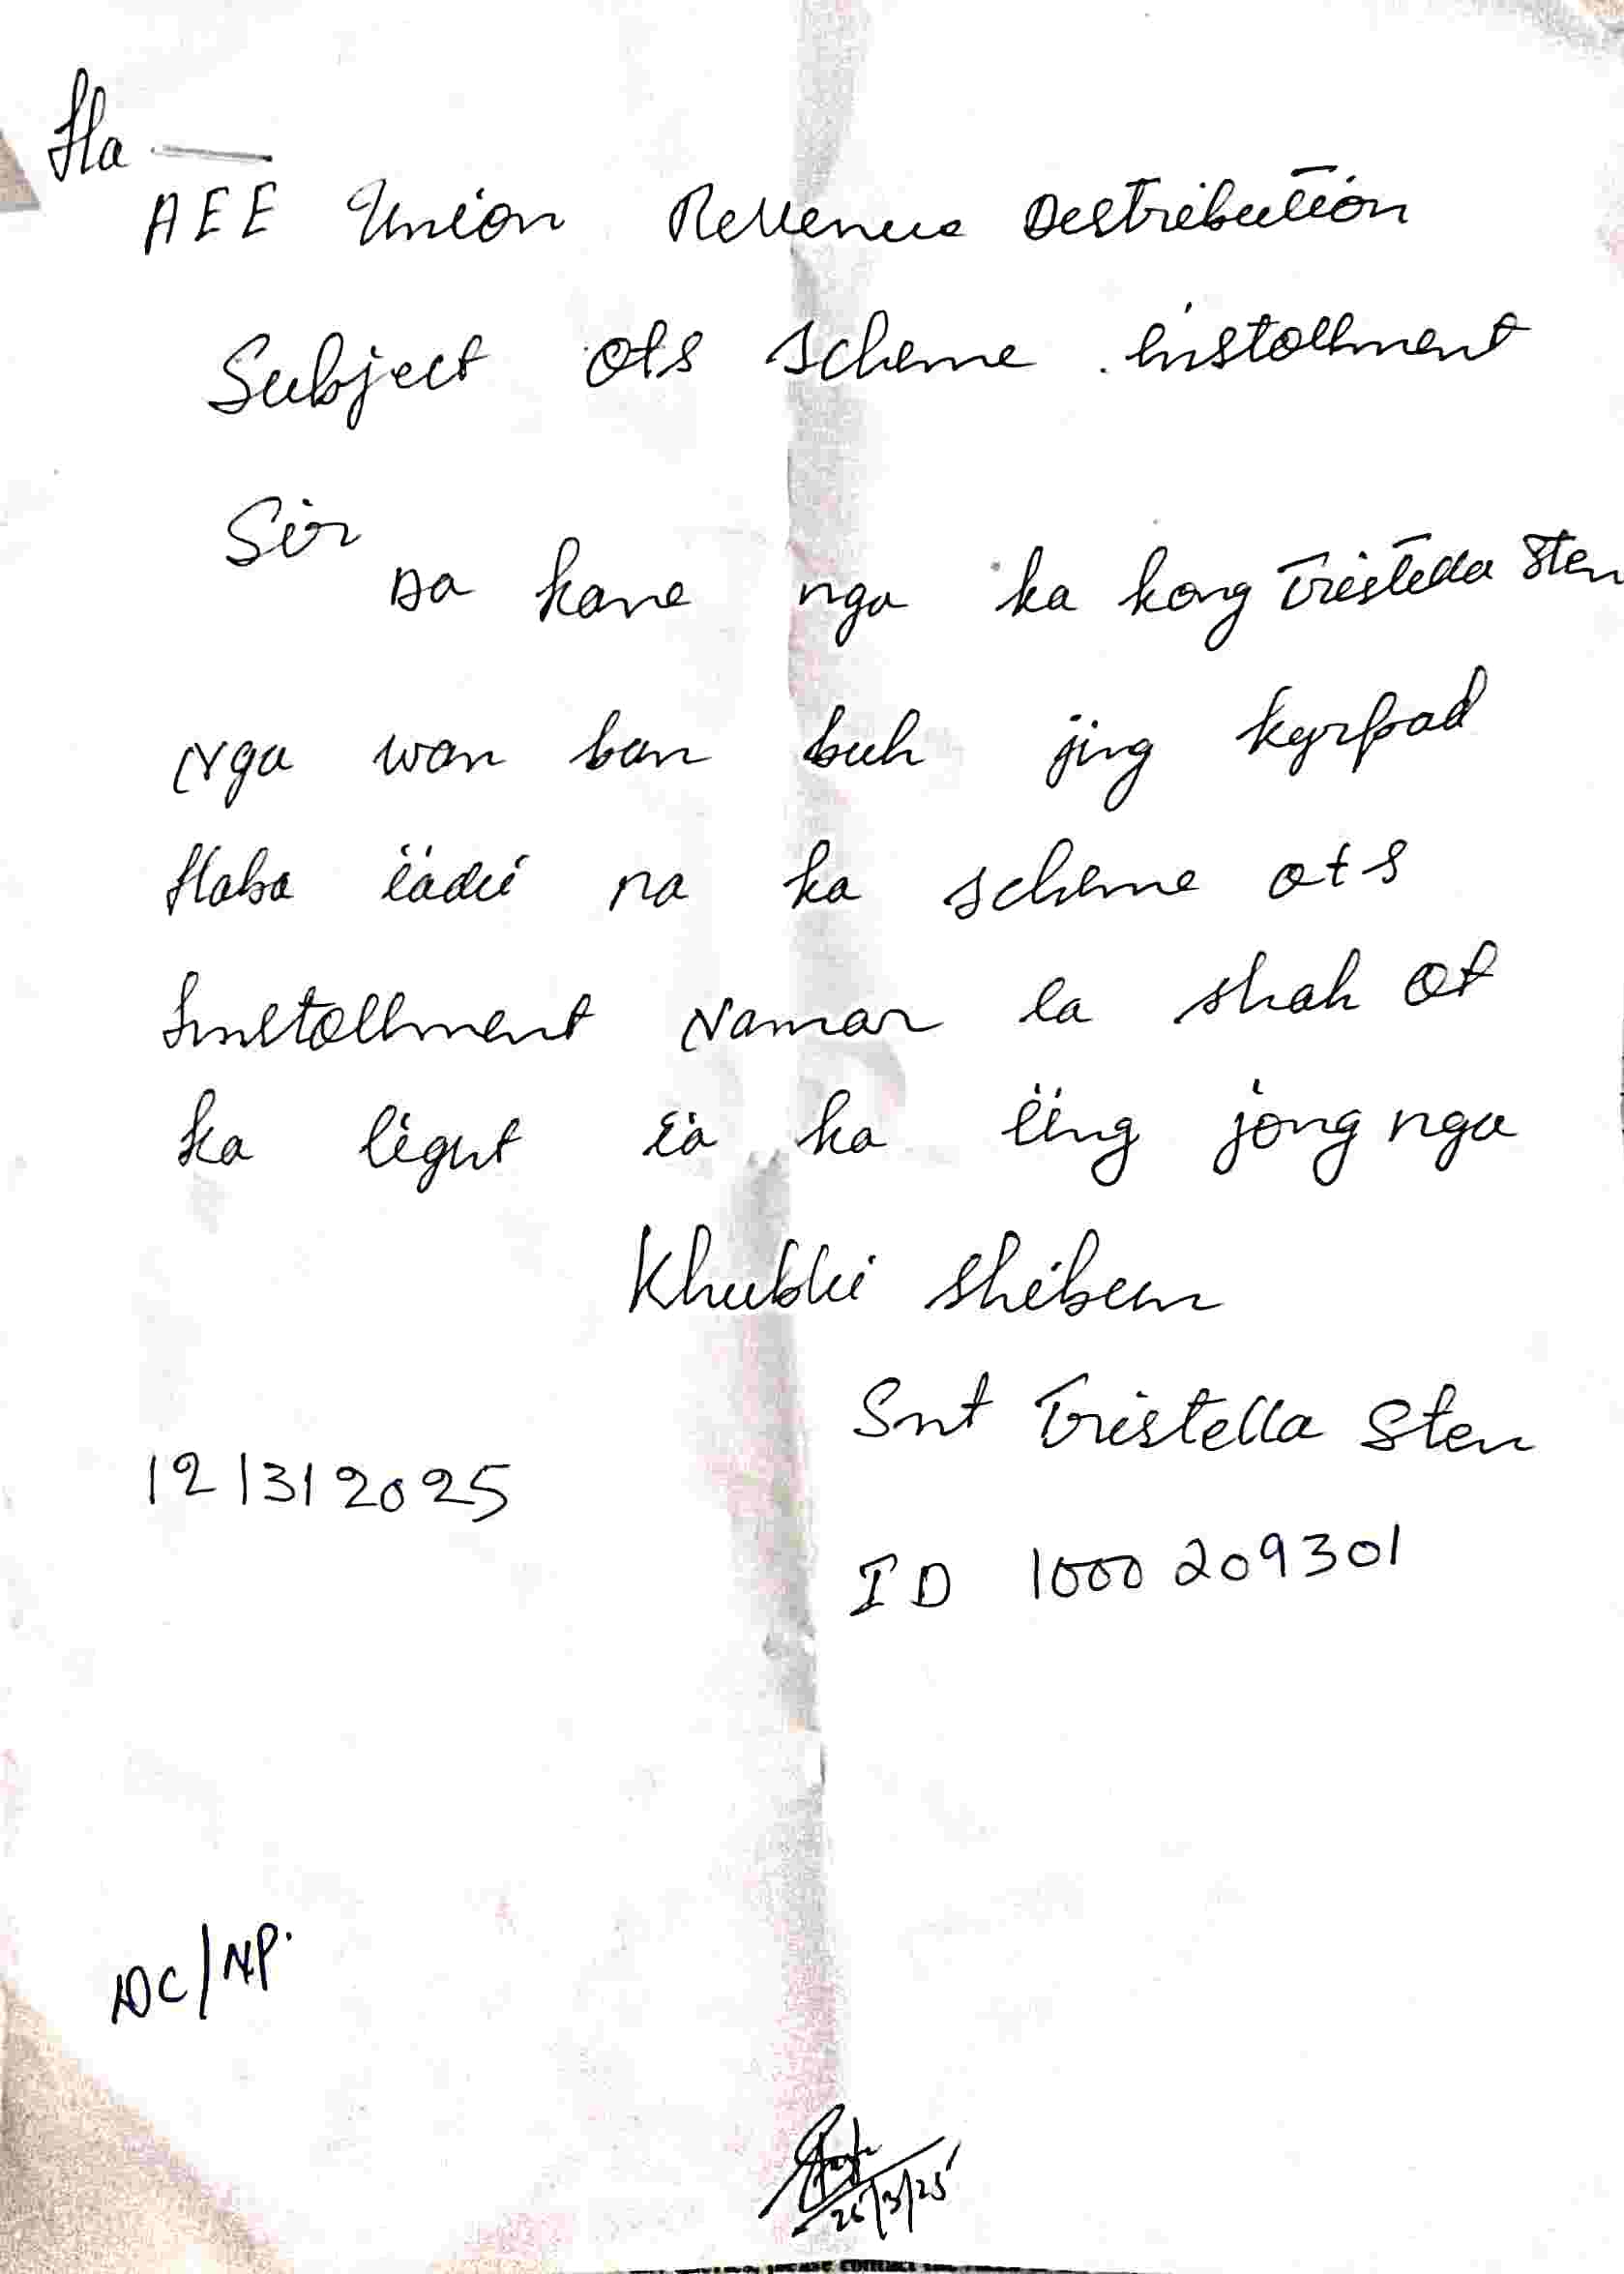 Ha —
AEE Union Revenue Distribution
Subject ots scheme . instollment
Sir
Da kane nga ka kong Tristella Sten
Nga wan ban buh jing kyrpad
Haba ïadei na ka scheme ots
Instollment Namar la shah ot
ka light ïa ka ïing jong nga
Khublei shibun
Smt Tristella Sten
12/3/2025
ID 1000209301
DC/NP.
26/3/25